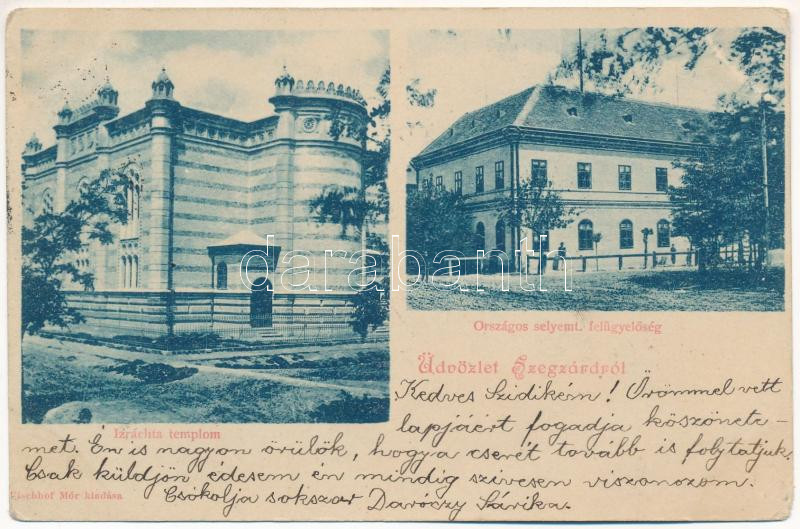 darabanth
Országos selyemt. felügyelőség
Üdvözlet Szegzárdról
Izráelita templom
Kedves Szidikém! Örömmel vett
lapjáért fogadja köszönete-
met. Én is nagyon örülök, hogya cserét tovább is folytatjuk.
Csak küldjön édesem én mindig szivesen viszonozom.
Fischhof Mór kiadása
Csókolja sokszor Daróczy Sárika.